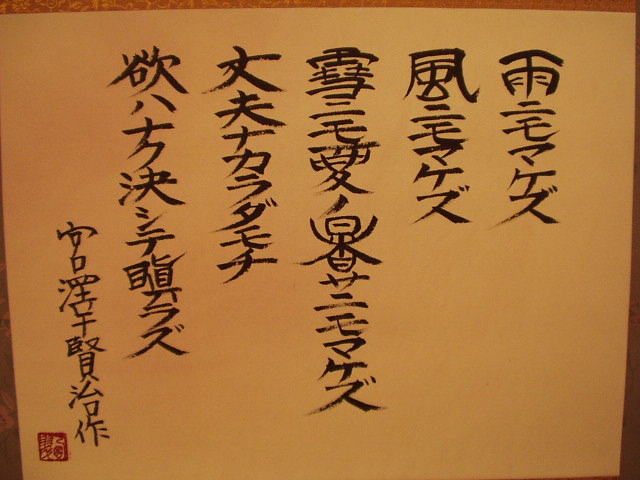 雨ニモマケズ
風ニモマケズ
雪ニモ夏ノ暑サニモマケズ
丈夫ナカラダモチ
欲ハナク決シテ瞋ラズ
宮澤賢治作